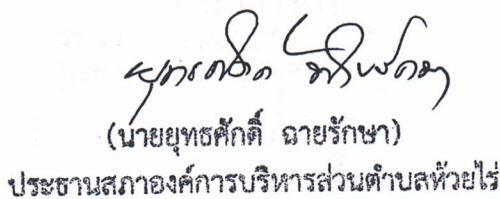 (นายยุทธศักดิ์ ฉายรักษา)
ประธานสภาองค์การบริหารส่วนตำบลห้วยไร่